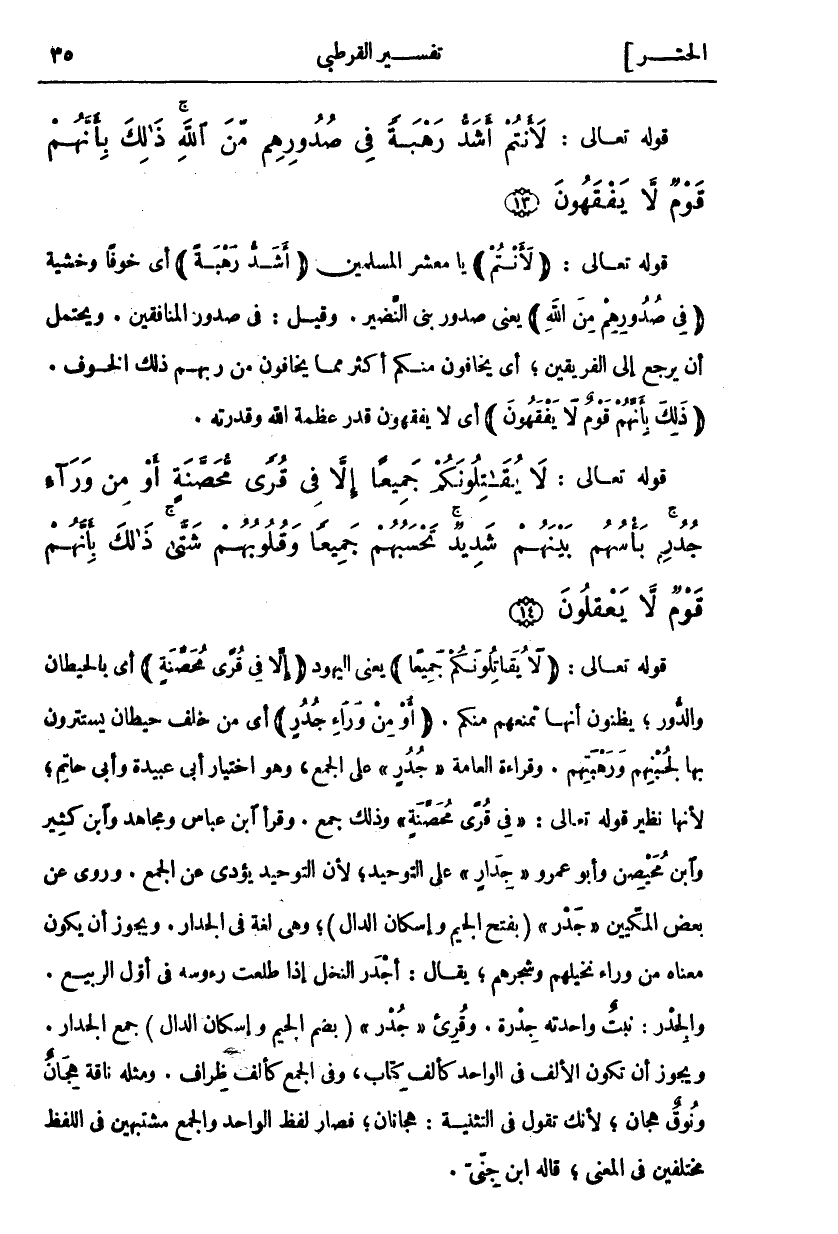 الحشر] تفسير القرطبي ٣٥
قوله تعالى : لَأَنتُمْ أَشَدُّ رَهْبَةً فِى صُدُورِهِم مِّنَ ٱللَّهِ ۚ ذَٰلِكَ بِأَنَّهُمْ
قَوْمٌ لَّا يَفْقَهُونَ ﴿١٣﴾
قوله تعالى : ﴿ لَأَنْتُمْ ﴾ يا معشر المسلمين ﴿ أَشَدُّ رَهْبَةً ﴾ أى خوفًا وخشية
﴿ فِي صُدُورِهِمْ مِنَ اللهِ ﴾ يعنى صدور بنى النَّضير . وقيل : فى صدور المنافقين . ويحتمل
أن يرجع إلى الفريقين ؛ أى يخافون منكم أكثر مما يخافون من ربهم ذلك الخوف .
﴿ ذَلِكَ بِأَنَّهُمْ قَوْمٌ لَا يَفْقَهُونَ ﴾ أى لا يفقهون قدر عظمة الله وقدرته .
قوله تعالى : لَا يُقَٰتِلُونَكُمْ جَمِيعًا إِلَّا فِى قُرًى مُّحَصَّنَةٍ أَوْ مِن وَرَآءِ
جُدُرٍۭ ۚ بَأْسُهُم بَيْنَهُمْ شَدِيدٌ ۚ تَحْسَبُهُمْ جَمِيعًا وَقُلُوبُهُمْ شَتَّىٰ ۚ ذَٰلِكَ بِأَنَّهُمْ
قَوْمٌ لَّا يَعْقِلُونَ ﴿١٤﴾
قوله تعالى : ﴿ لَا يُقَاتِلُونَكُمْ جَمِيعًا ﴾ يعنى اليهود ﴿ إِلَّا فِي قُرًى مُحَصَّنَةٍ ﴾ أى بالحيطان
والدُّور ؛ يظنون أنها تمنعهم منكم . ﴿ أَوْ مِنْ وَرَاءِ جُدُرٍ ﴾ أى من خلف حيطان يستترون
بها لجُبْنِهم وَرَهْبَتِهم . وقراءة العامة « جُدُرٍ » على الجمع ، وهو اختيار أبى عبيدة وأبى حاتم ؛
لأنها نظير قوله تعالى : « فِي قُرًى مُحَصَّنَةٍ » وذلك جمع . وقرأ ٱبن عباس ومجاهد وٱبن كثير
وٱبن مُحَيْصِن وأبو عمرو « جِدَارٍ » على التوحيد ؛ لأن التوحيد يؤدى عن الجمع . وروى عن
بعض المكّيين « جَدْر » ( بفتح الجيم و إسكان الدال ) ؛ وهى لغة فى الجدار . ويجوز أن يكون
معناه من وراء نخيلهم وشجرهم ؛ يقال : أجْدَر النخل إذا طلعت رءوسه فى أوّل الربيع .
والجِدْر : نبتٌ واحدته جِدْرة . وقُرِئ « جُدْر » ( بضم الجيم و إسكان الدال ) جمع الجدار .
ويجوز أن تكون الألف فى الواحد كألف كِتاب ، وفى الجمع كألف ظِراف . ومثله ناقة هِجَانٌ
ونُوقٌ هجان ؛ لأنك تقول فى التثنية : هجانان ؛ فصار لفظ الواحد والجمع مشتبهين فى اللفظ
مختلفين فى المعنى ؛ قاله ابن جِنّى .